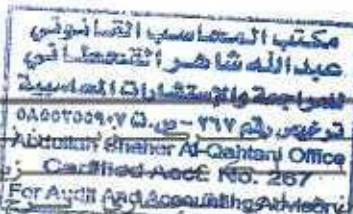 مكتب المحاسب القانوني
عبدالله شاهر القحطاني
للمراجعة والإستشارات المحاسبية
ترخيص رقم ٢٦٧ - س.ت ٥٨٥٥٢٥٥٩٠٧
Abdullah Shaher Al-Qahtani Office
Certified Acc. No. 267
For Audit And Accounting Advisory